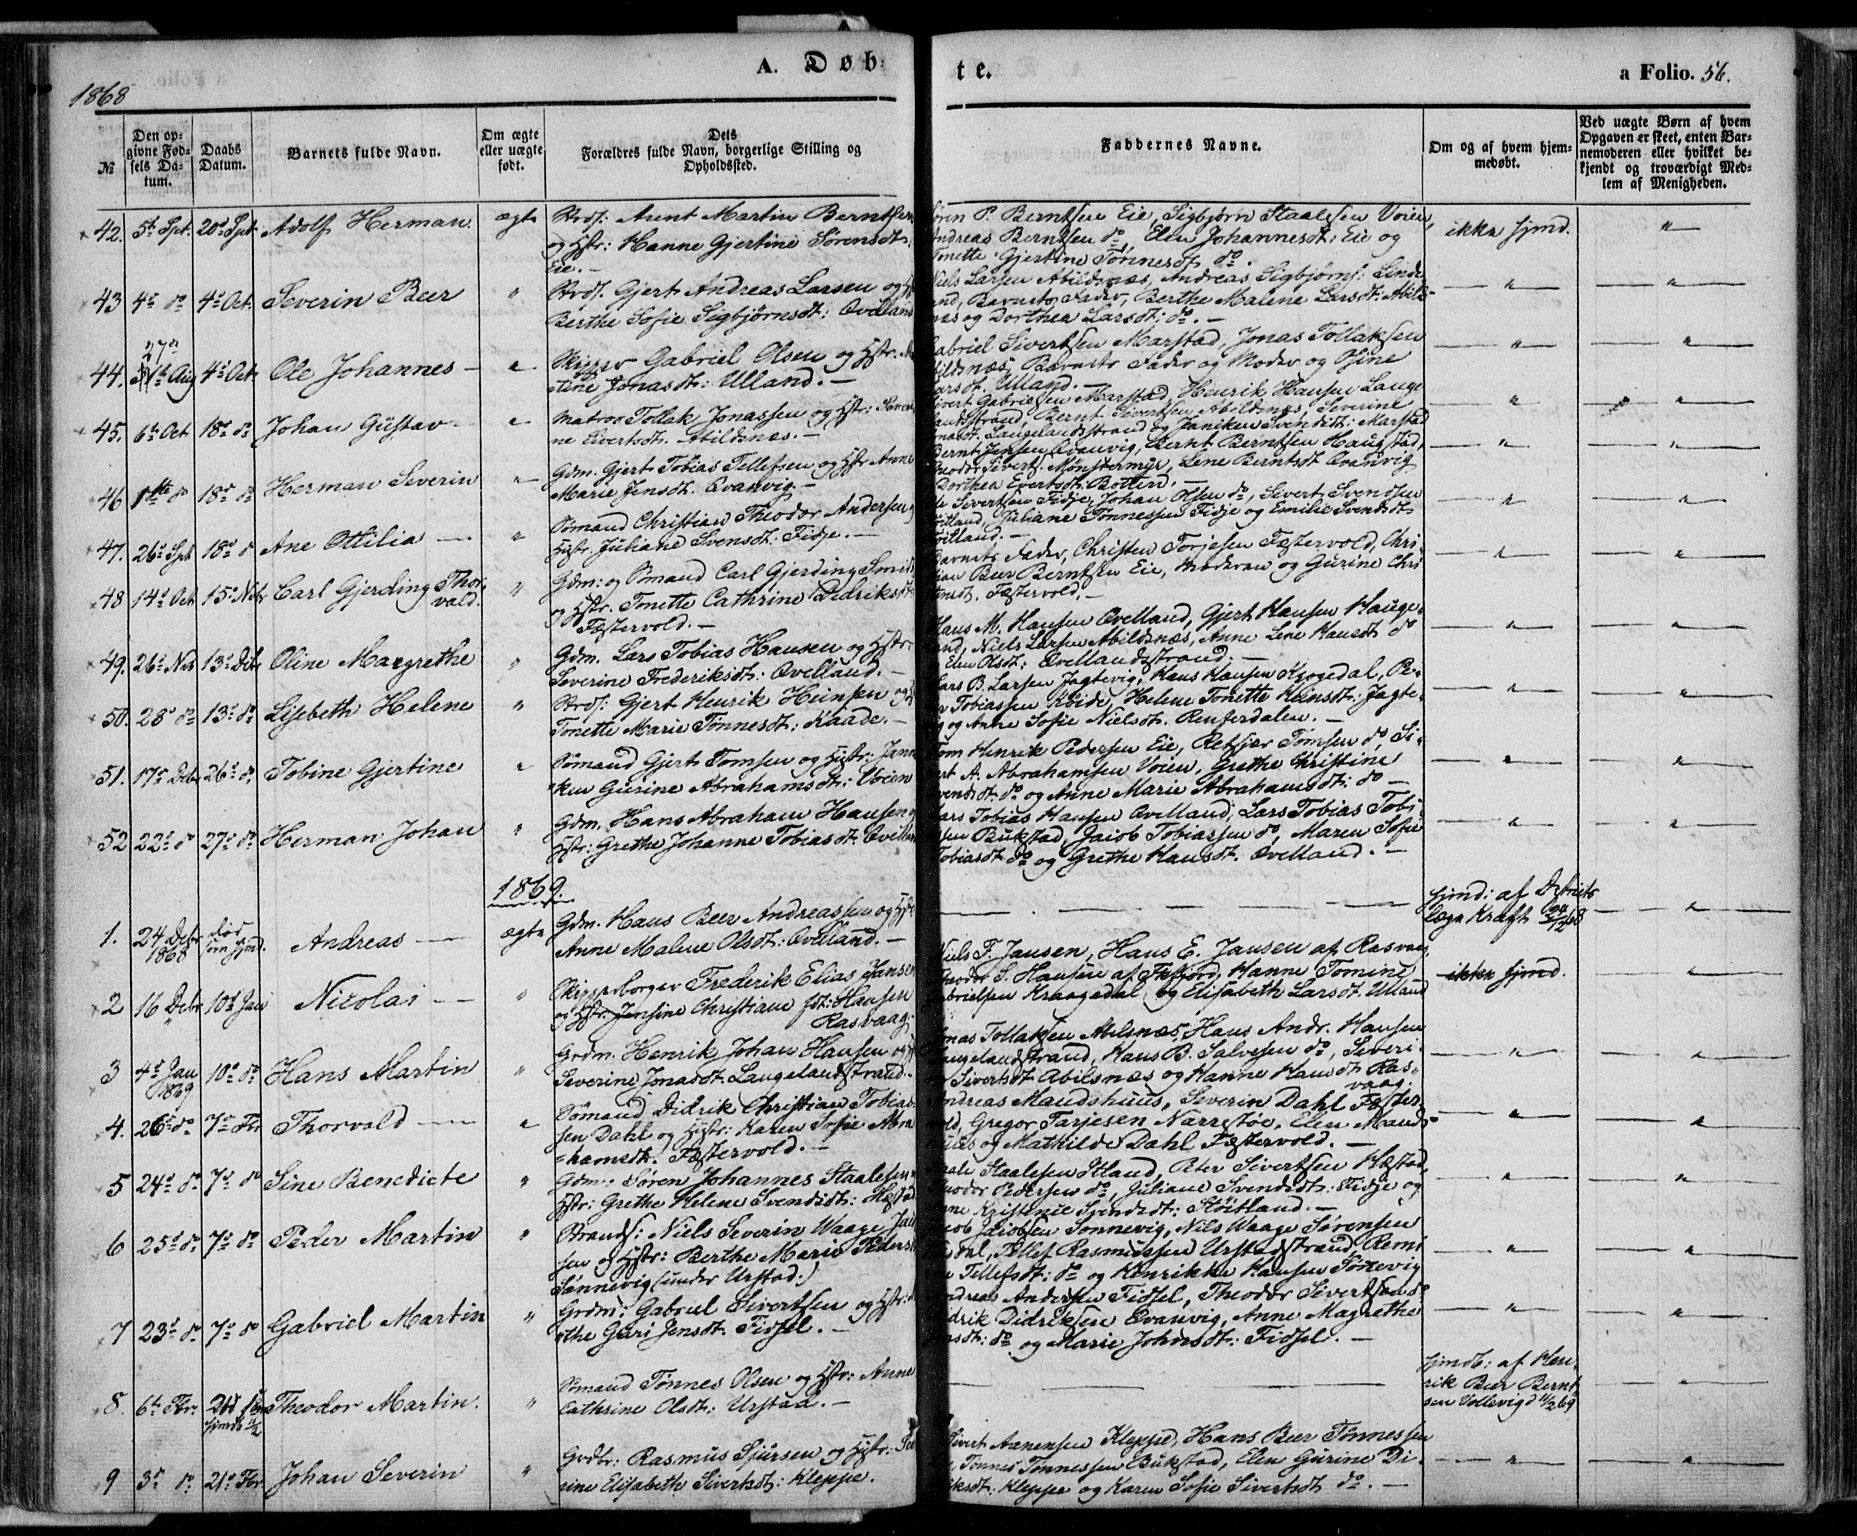 1868
A. Døb-
te.
a Folio. 56.
№
Den opgivne Fødsels Datum.
Daabs Datum.
Barnets fulde Navn.
Om ægte eller uægte født.
Dets Forældres fulde Navn, borgerlige Stilling og Opholdssted.
Faddernes Navne.
Om og af hvem hjemmedøbt.
Ved uægte Børn af hvem Opgaven er skeet, enten Barnemoderen eller hvilket bekjendt og troværdigt Medlem af Menigheden.
42. 5t Spt. 20d Spt. Adolf Herman. ægte
Strds: Arent Martin Berntsen
og Hstr: Hanne Gjertine Sørensdt.
Eie. —
P. Berntsen Eie, Sigbjørn Staalesen Voien
Andreas Berntsen do, Elen Johannesdt: Eie og
Tonette Gjertine Tønnesdt do. ikke hjmd. "
43 4d do 4d Oct. Severin Beer "
Strds. Gjert Andreas Larsen og
Berthe Sofie Sigbjørnsdt: Ovelland
Niels Larsen Abildsnæs, Andreas Sigbjørns:
Barnets Fader, Berthe Malene Larsdt:
og Dorthea Larsdt: do. —
44. 27d Aug 4d Oct. Ole Johannes — "
Skipper Gabriel Olsen og Hstr:
tine Jonasdt: Ulland. —
Gabriel Sivertsen Marstad, Jonas Tollaksen
Abildsnæs, Barnets Fader og Moder og
Larsdt. Ulland. —
45. 6t Oct 18d do Johan Gustav — "
Matros Tollak Jonassen og Hstr: Severi
ne Sivertsdt. Abildsnæs. —
Sivert Gabrielsen Marstad, Henrik Hansen Lange
landsstrand, Bernt Sivertsen Abildsnæs, Severine
Langelandsstrand og Janiken Svendsdt: Marstad
46 do 18d do Herman Severin "
Gdm. Gjert Tobias Tellefsen og Hstr Anne
Marie Jensdt. Qvanvig. —
Bernt Jensen Qvanvig, Bernt Berntsen Haugstad,
Theodor Siverts: Mønstermyr, Lene Berntsdt Qvanvig
Dorthea Evertsdt: Botten. —
47. 26d Spt 18d do Ane Ottilia — "
Sømand Christian Theodor Andersen
Hstr: Juliane Svensdt: Fidje. —
Sivertsen Fidje, Johan Olsen do, Sivert Svendsen
Støitland, Juliane Tønnessen Fidje og Emilie Svendsdt
Støitland. —
48 14d Oct 15d Nvbr Carl Gjerding Thor
vald. "
Gdm: og Sømand Carl Gjerding Smidt
og Hstr: Tonette Cathrine Didriksdt
Fæstervold. —
Barnets Fader, Christen Torjesen Fæstervold, Chri
stian Beer Berntsen Eie, Moderen og Gurine Chri
stensdt. Fæstervold. —
49. 26d Nvb 13d Dcbr Oline Margrethe "
Gdm. Lars Tobias Hansen og Hstr:
Severine Frederiksdt: Ovelland. —
Hans M. Hansen Ovelland, Gjert Hansen Hauge
land, Niels Larsen Abildsnæs, Anne Lene Hansdt do
Elen Olsdt: Ovellandsstrand. —
50. 28d do 13d do Lisebeth Helene "
Strds: Gjert Henrik Heinsen og
Tonette Marie Tønnesdt: Raade. —
Lars B. Larsen Jagtevig, Hans Hansen Kragedal, Pe-
der Tobiassen Røide, Helene Tonette Heinsdt: Jagte-
vig og Anne Sofie Nielsdt. Renserdalen. —
51. 17d Dcbr 26d do Tobine Gjertine "
Sømand Gjert Tomsen og Hstr: Jann
iken Gurine Abrahamsdt: Voien
Tom Henrik Pedersen Eie, Retsjær Tomsen do, Si-
vert A. Abrahamsen Voien, Grethe Christine
Svendsdt: do og Anne Marie Abrahamsdt: do —
52 22d do 27d do Herman Johan "
Gdm. Hans Abraham Hansen og
Hstr: Grethe Johanne Tobiasdt. Ovelland
Lars Tobias Hansen Ovelland, Lars Tobias Tobi-
assen Bukstad, Jacob Tobiassen do, Maren Sofie
Tobiasdt do og Grethe Hansdt. Ovelland. —
1869.
1. 24 Debr 1868 død som hjmd. Andreas — ægte
Gdm. Hans Beer Andreassen og
Anne Malene Olsdt: Ovelland. —
hjmd: af Distrikts
læge Kraft 24/12 68
2 16 Debr 10d Jan Nicolai — "
Skipperborger Frederik Elias Jansen
og Hstr. Jensine Christiane fdt: Hansen
Rasvaag.
Niels F. Jansen, Hans E. Jansen af Rasvaag,
Theodor S. Hansen af Fefjord, Hanne Tomine
Gabrielsen Kraagedal og Elisabeth Larsdt. Ulland
ikke hjmd.
3 4d Jan 1869 10d do Hans Martin "
Grdm. Henrik Johan Hansen og
Severine Jonasdt. Langelandsstrand.
Jonas Tollaksen Abilsnæs, Hans Andr. Hansen
Langelandsstrand, Hans B. Salvesen do, Severi-
ne Sivertsdt Abilsnæs og Hanne Hansdt Ras-
vaag.
4. 26d do 7d Fbr Thorvald — "
Sømand Didrik Christian Tobias-
sen Dahl og Hstr: Karen Sofie Abra
hamsdt. Fæstervold. —
Andreas Maudshuus, Severin Dahl Fæster
vold, Gregor Tarjesen Narrestøe, Elen Mauds
huus og Mathilde Dahl Fæstervold. —
5 24d do 7d do Sine Benedicte "
Gdm: Søren Johannes Staalesen
Hstr: Grethe Helene Svendsdt: Hæstad
Staale Staalesen Itland, Peter Sivertsen Hæstad,
Theodor Pedersen do, Juliane Svendsdt: Fidje og
Anne Kristense Svendsdt: Støitland. —
6 25d do 7d do Peder Martin "
Strands: Niels Severin Waage Jacob
sen og Hstr: Berthe Marie Pedersdt
Sønnevig (under Urstad.)
Jacob Jacobsen Sønnevig, Nils Waage Sørensen
Tellef Rasmussen Urstadstrand, Remi
Tellefsdt: do og Henrikke Hansen
7 23d do 7d do Gabriel Martin "
Grdm: Gabriel Sivertsen og Hstr:
Guri Jensdt. Fidsel. —
Andreas Andersen Fidsel, Theodor Sivertsen do
Didrik Didriksen Qvanvig, Anne Magrethe
Jensdt: do og Marie Johnsdt: Fidsel. —
8. 6t Fbr. Theodor Martin. "
Sømand Tønnes Olsen og Hstr: Anne
Cathrine Olsdt: Urstad. —
hjmdb: af Hen
rik Beer Bernt
sen Vollevig d 11/2 69
9 3d do 21d Fbr Johan Severin "
Grdbr: Rasmus Sjursen og Hstr: Se
rine Elisabeth Sivertsdt: Kleppe.
Sivert Aanensen Kleppe, Hans Beer Tønnessen
Tønnes Tønnessen Bukstad, Elen Gurine Di-
driksdt: Kleppe og Karen Sofie Sivertsdt do. —